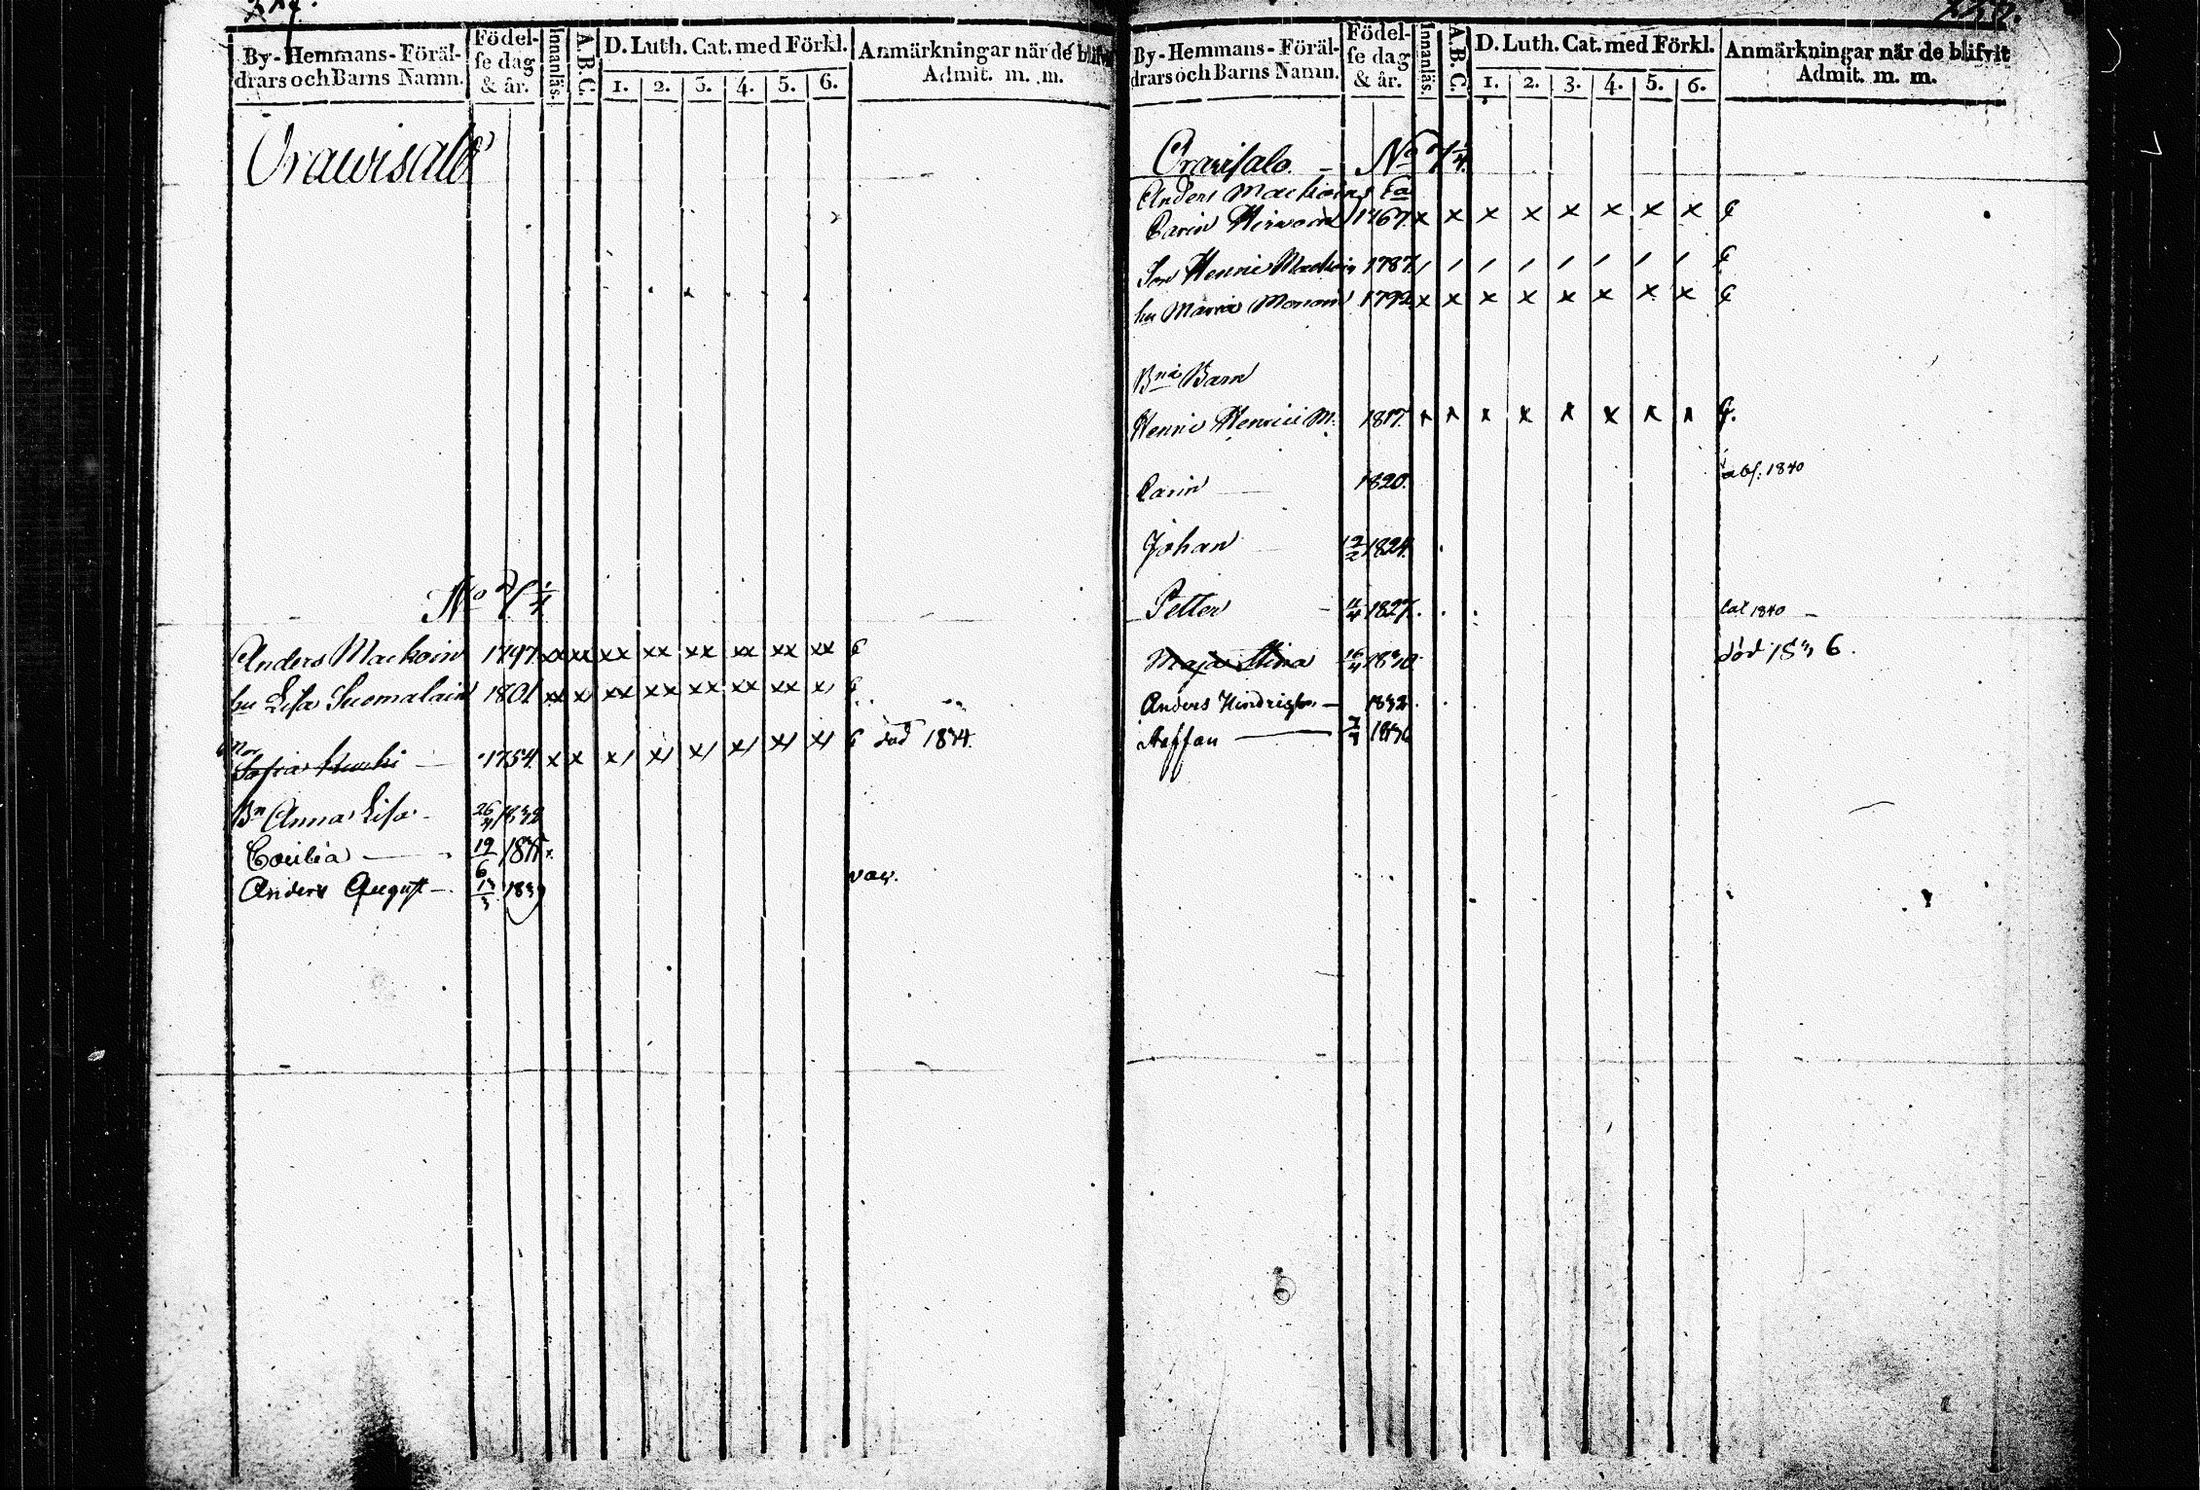 By-Hemmans-Föräl-
drars och Barns Namn.
Födel-
se dag
& år.
Innanläs.
A.B.C.
D. Luth. Cat. med Förkl.
1. 2. 3. 4. 5. 6.
Anmärkningar när de blifvit
Admit. m. m.
Orawisalo
No
Anders Mackoin 1797 xx xx xx xx xx xx xx xx
hu Lisa Suomalain 1801 xx xx xx xx xx xx
Mor
Sofia 1754 x x död 1834.
Bn Anna Lisa 26/4 1832
Cecilia 19/6
Anders August 13/3 1839 vac.
By-Hemmans-Föräl-
drars och Barns Namn.
Födel-
se dag
& år.
Innanläs.
A.B.C.
D. Luth. Cat. med Förkl.
1. 2. 3. 4. 5. 6.
Anmärkningar när de blifvit
Admit. m. m.
Orawisalo. No
Anders Mackoins
Carin Hirvoin 1767 x x x x x x x x
Son Henric Mackoin 1787 / / / / / / / /
hu Maria 1792 x x x x x x x x
Barn
Henric Henrici M. 1817. x x x x x x x x
Carin 1820. abs: 1840
Johan 12/2 1824.
Petter 1827. 1840
Maja Stina 16/4 1830 död 1836.
Anders Hindrigss. 1832
Staffan 1836